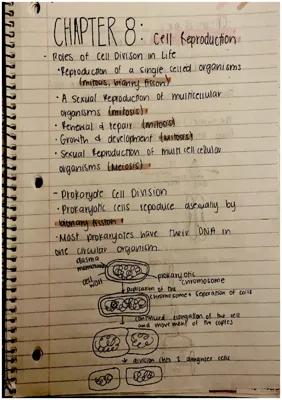 CHAPTER 8: Cell Reproduction
- Roles of Cell Divison in Life
• Reproduction of a single celled organisms
(mitosis, bianry fison)
• A Sexual Reproduction of multicellular
organisms (mitosis)
• Renewal & repair (mitosis)
• Growth & development (mitosis)
• Sexual Reproduction of multicellcellular
organisms (Meiosis)
- Prokaryote Cell Division
• Prokaryotic cells repoduce asexually by
bionary fission
• Most prokaryotes have their DNA in
one circular organism
plasma
membrane
cell
wall
prokaryotic
chromosome
↓ Duplication of the
chromosome & separation of copies
↓ continued elongation of the cell
and movement of the copies
↓ division into 2 daughter cells